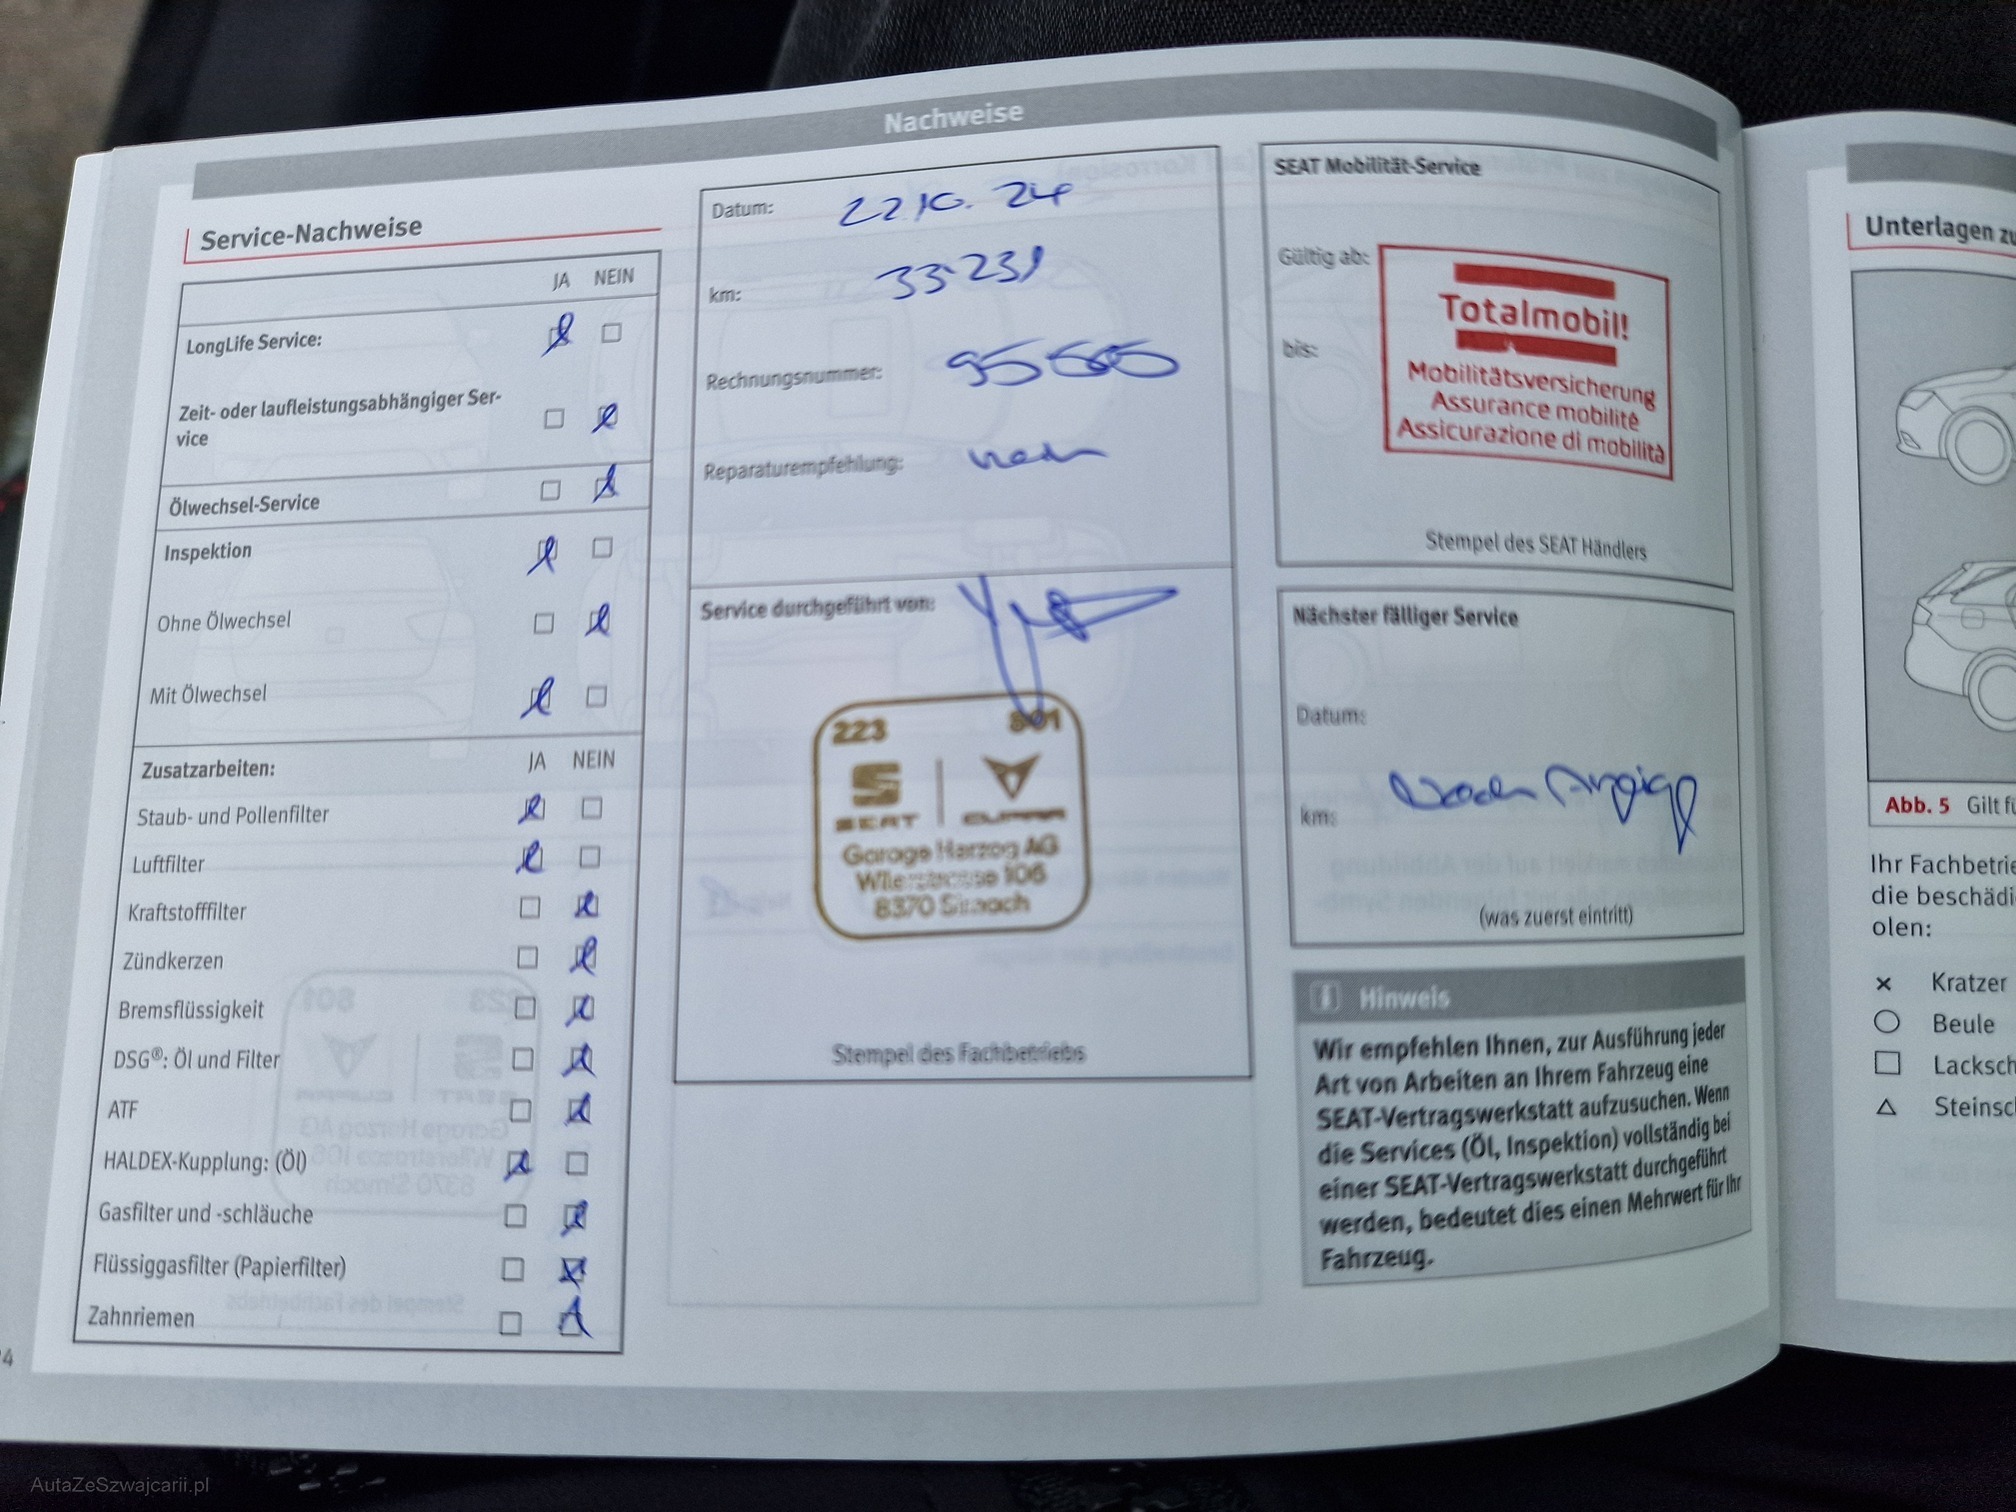 Nachweise
Service-Nachweise
JA NEIN
LongLife Service:
Zeit- oder laufleistungsabhängiger Ser-
vice
Ölwechsel-Service
Inspektion
Ohne Ölwechsel
Mit Ölwechsel
Zusatzarbeiten: JA NEIN
Staub- und Pollenfilter
Luftfilter
Kraftstofffilter
Zündkerzen
Bremsflüssigkeit
DSG®: Öl und Filter
ATF
HALDEX-Kupplung: (Öl)
Gasfilter und -schläuche
Flüssiggasfilter (Papierfilter)
Zahnriemen
Datum: 22 10. 24
km: 33.231
Rechnungsnummer:
Reparaturempfehlung:
Service durchgeführt von:
223 801
SEAT CUPRA
Garage Herzog AG
Wilerstrasse 106
8370 Sirnach
Stempel des Fachbetriebs
SEAT Mobilität-Service
Gültig ab:
bis:
Totalmobil!
Mobilitätsversicherung
Assurance mobilité
Assicurazione di mobilità
Stempel des SEAT Händlers
Nächster fälliger Service
Datum:
km: Nach Anzeige
(was zuerst eintritt)
i Hinweis
Wir empfehlen Ihnen, zur Ausführung jeder
Art von Arbeiten an Ihrem Fahrzeug eine
SEAT-Vertragswerkstatt aufzusuchen. Wenn
die Services (Öl, Inspektion) vollständig bei
einer SEAT-Vertragswerkstatt durchgeführt
werden, bedeutet dies einen Mehrwert für Ihr
Fahrzeug.
Unterlagen zu
Abb. 5 Gilt fü
Ihr Fachbetrie
die beschädi
olen:
Kratzer
Beule
Lacksch
Steinsc
AutaZeSzwajcarii.pl